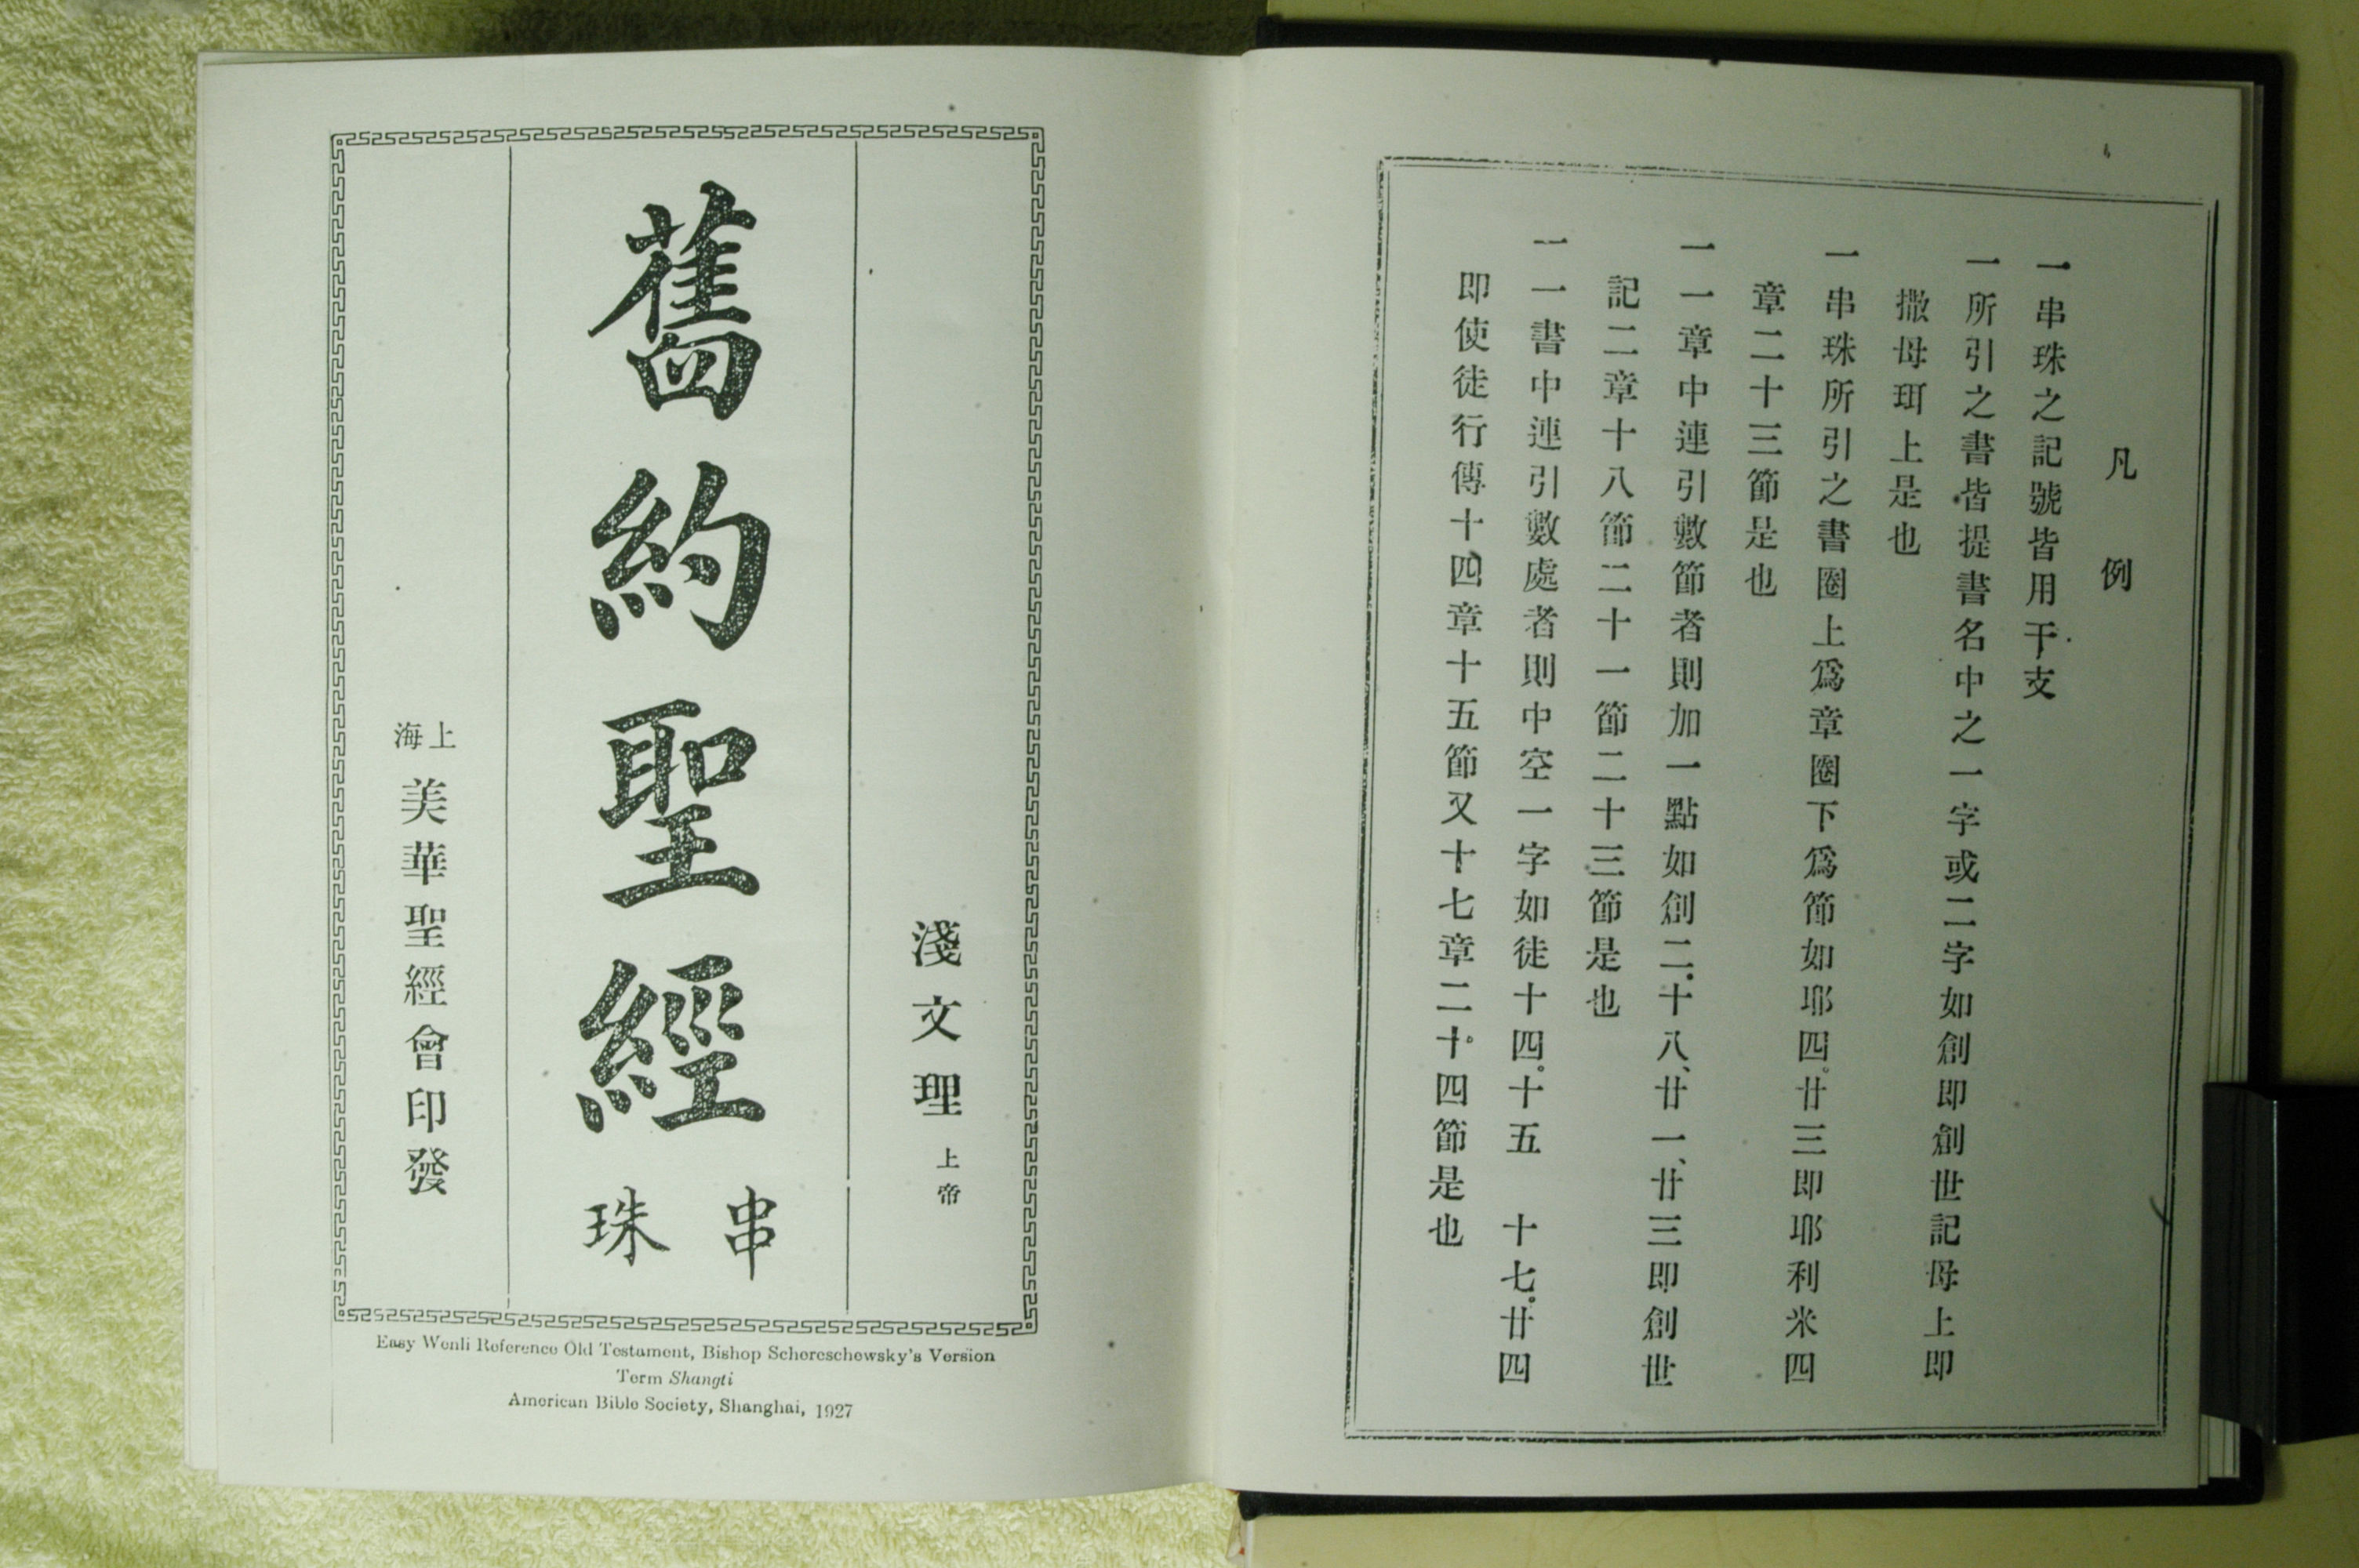 淺文理 上帝
舊約聖經 串珠
上海 美華聖經會印發
Easy Wenli Reference Old Testament, Bishop Schereschewsky's Version
Term Shangti
American Bible Society, Shanghai, 1927
凡例
一串珠之記號皆用干支
一所引之書皆提書名中之一字或二字如創即創世記母上即
撒母耳上是也
一串珠所引之書圈上爲章圈下爲節如耶四。廿三即耶利米四
章二十三節是也
一一章中連引數節者則加一點如創二。十八、廿一、廿三即創世
記二章十八節二十一節二十三節是也
一一書中連引數處者則中空一字如徒十四。十五 十七。廿四
即使徒行傳十四章十五節又十七章二十四節是也